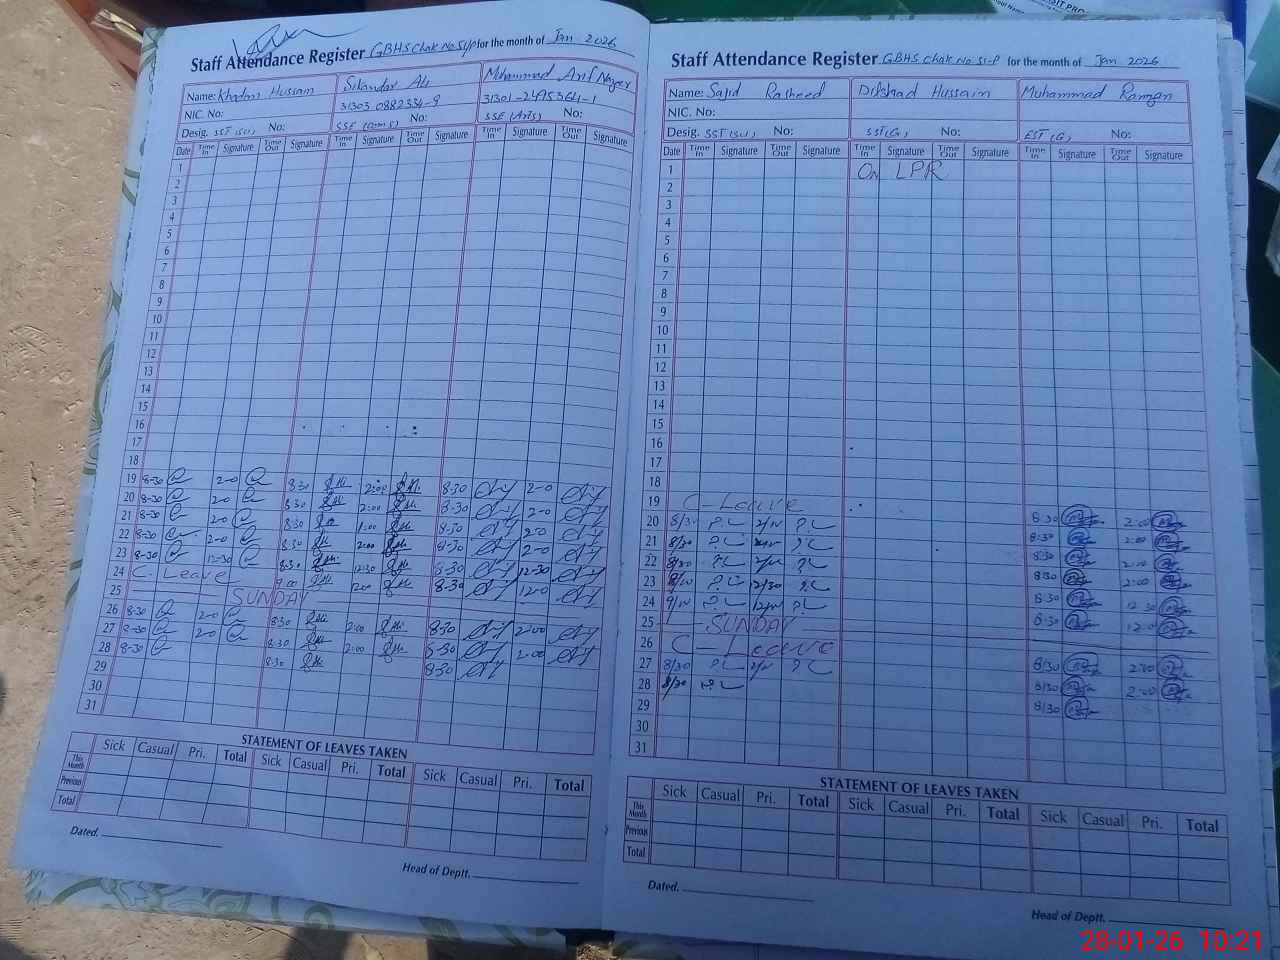 Staff Attendance Register GBHS Chak No 51/P for the month of Jan 2026
Name: Khadim Hussain Sikandar Ali Muhammad Arif Nazeer
NIC. No: 31303 0882334-9 31301-2495364-1
Desig. SST (Sci) No: SSE (Com S) No: SSE (Arts) No:
Date Time In Signature Time Out Signature Time In Signature Time Out Signature Time In Signature Time Out Signature
1
2
3
4
5
6
7
8
9
10
11
12
13
14
15
16
17
18
19 8-30 2-0 8:30 2:00 8:30 2-0
20 8-30 2-0 8:30 2:00 8-30 2-0
21 8-30 2-0 8:30 8:30 2-0
22 8-30 2-0 8:30 2:00 8-30 2-0
23 8-30 12-30 8:30 12:30 8-30 12-30
24 C. Leave 9:00 12:00 8-30 12-0
25 SUNDAY
26 8-30 2-0 8:30 2:00 8:30 2:00
27 8-30 2-0 8:30 2:00 8-30 2:00
28 8-30 8:30 8-30
29
30
31
STATEMENT OF LEAVES TAKEN
Sick Casual Pri. Total Sick Casual Pri. Total Sick Casual Pri. Total
This Month
Previous
Total
Dated.
Head of Deptt.
Staff Attendance Register GBHS Chak No 51-P for the month of Jan 2026
Name: Sajid Rasheed Dilshad Hussain Muhammad Ramzan
NIC. No:
Desig. SST (Sci) No: SST (G) No: EST (G) No:
Date Time In Signature Time Out Signature Time In Signature Time Out Signature Time In Signature Time Out Signature
1 On LPR
2
3
4
5
6
7
8
9
10
11
12
13
14
15
16
17
18
19 C-Leave
20 8/30 8 30 2:00
21 8/30 8:30 2:00
22 8/30 8:30
23 8/30 12/30 8:30 2:00
24 8:30 12 30
25 SUNDAY 8:30 12:0
26 C-Leave
27 8/30 8/30 2:00
28 8/30 8/30 2:00
29 8/30
30
31
STATEMENT OF LEAVES TAKEN
Sick Casual Pri. Total Sick Casual Pri. Total Sick Casual Pri. Total
This Month
Previous
Total
Dated.
Head of Deptt.
28-01-26 10:21